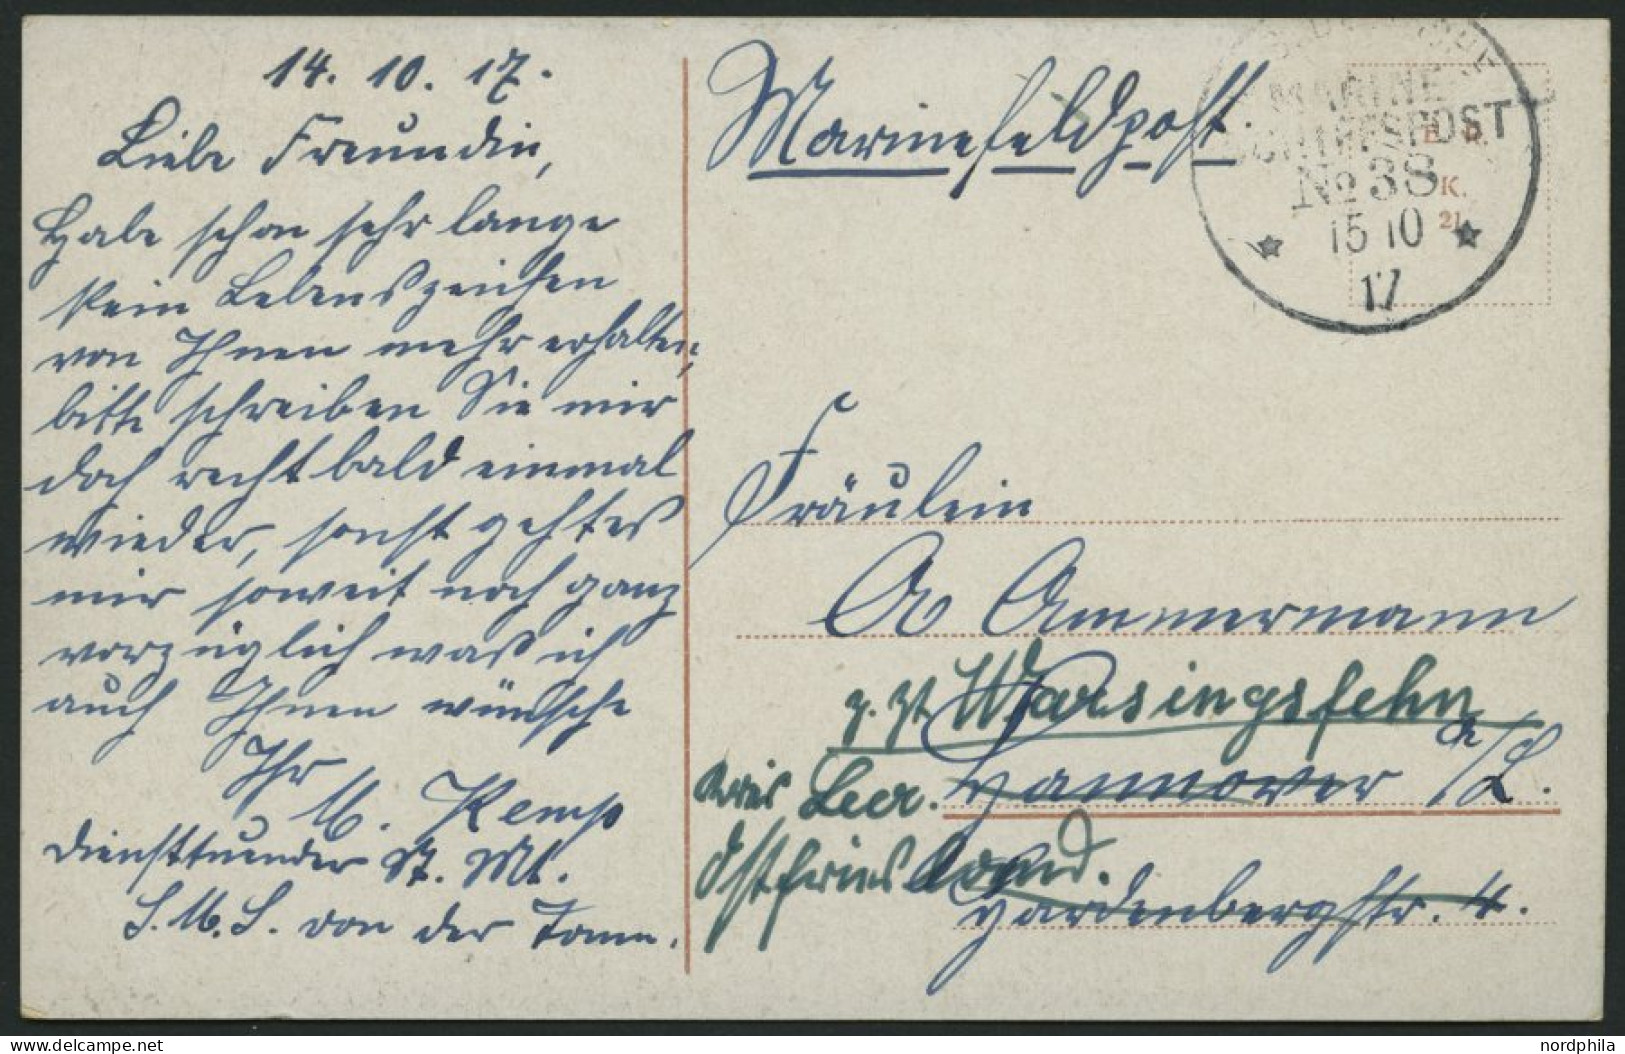 14. 10. 17.
Liebe Freundin,
Habe schon sehr lange
kein Lebenszeichen
von Ihnen mehr erhalten,
bitte schreiben Sie mir
doch recht bald einmal
wieder, sonst geht es
mir soweit noch ganz
vorzüglich was ich
auch Ihnen wünsche
Ihr
M. Kemp
diensttuender St. Mt.
S.M.S. von der Tann.
Marinefeldpost.
MARINE
SCHIFFSPOST
No 38
15 10
17
K.
21
Fräulein
A Ammermann
z. Zt Warsingsfehn
Kreis Leer.
Hannover a/L.
Ostfriesland.
Hardenbergstr. 4.
delcampe.net
nordphila